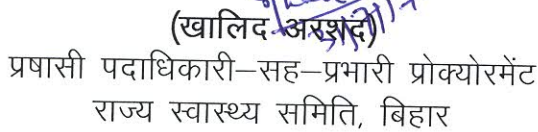 (खालिद अरशद)
प्रषासी पदाधिकारी–सह–प्रभारी प्रोक्योरमेंट
राज्य स्वास्थ्य समिति, बिहार